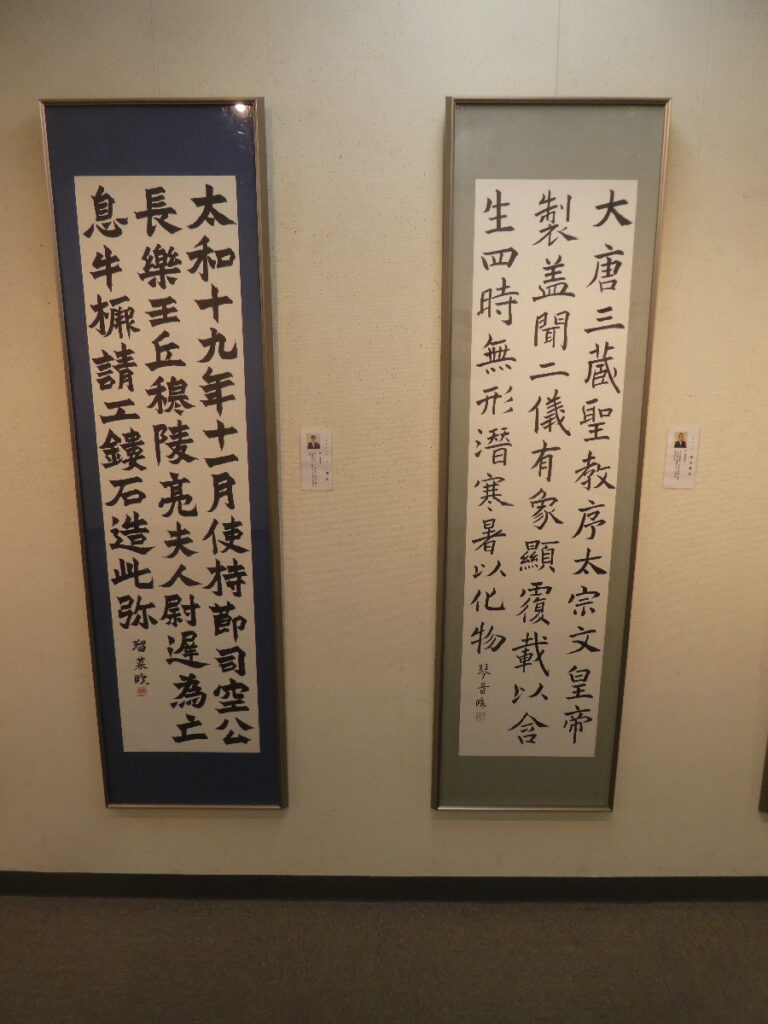 大唐三蔵聖教序太宗文皇帝
製盖聞二儀有象顯覆載以含
生四時無形潜寒暑以化物
琴音臨
太和十九年十一月使持節司空公
長樂王丘穆陵亮夫人尉遲為亡
息牛橛請工鏤石造此弥
瑠菜臨